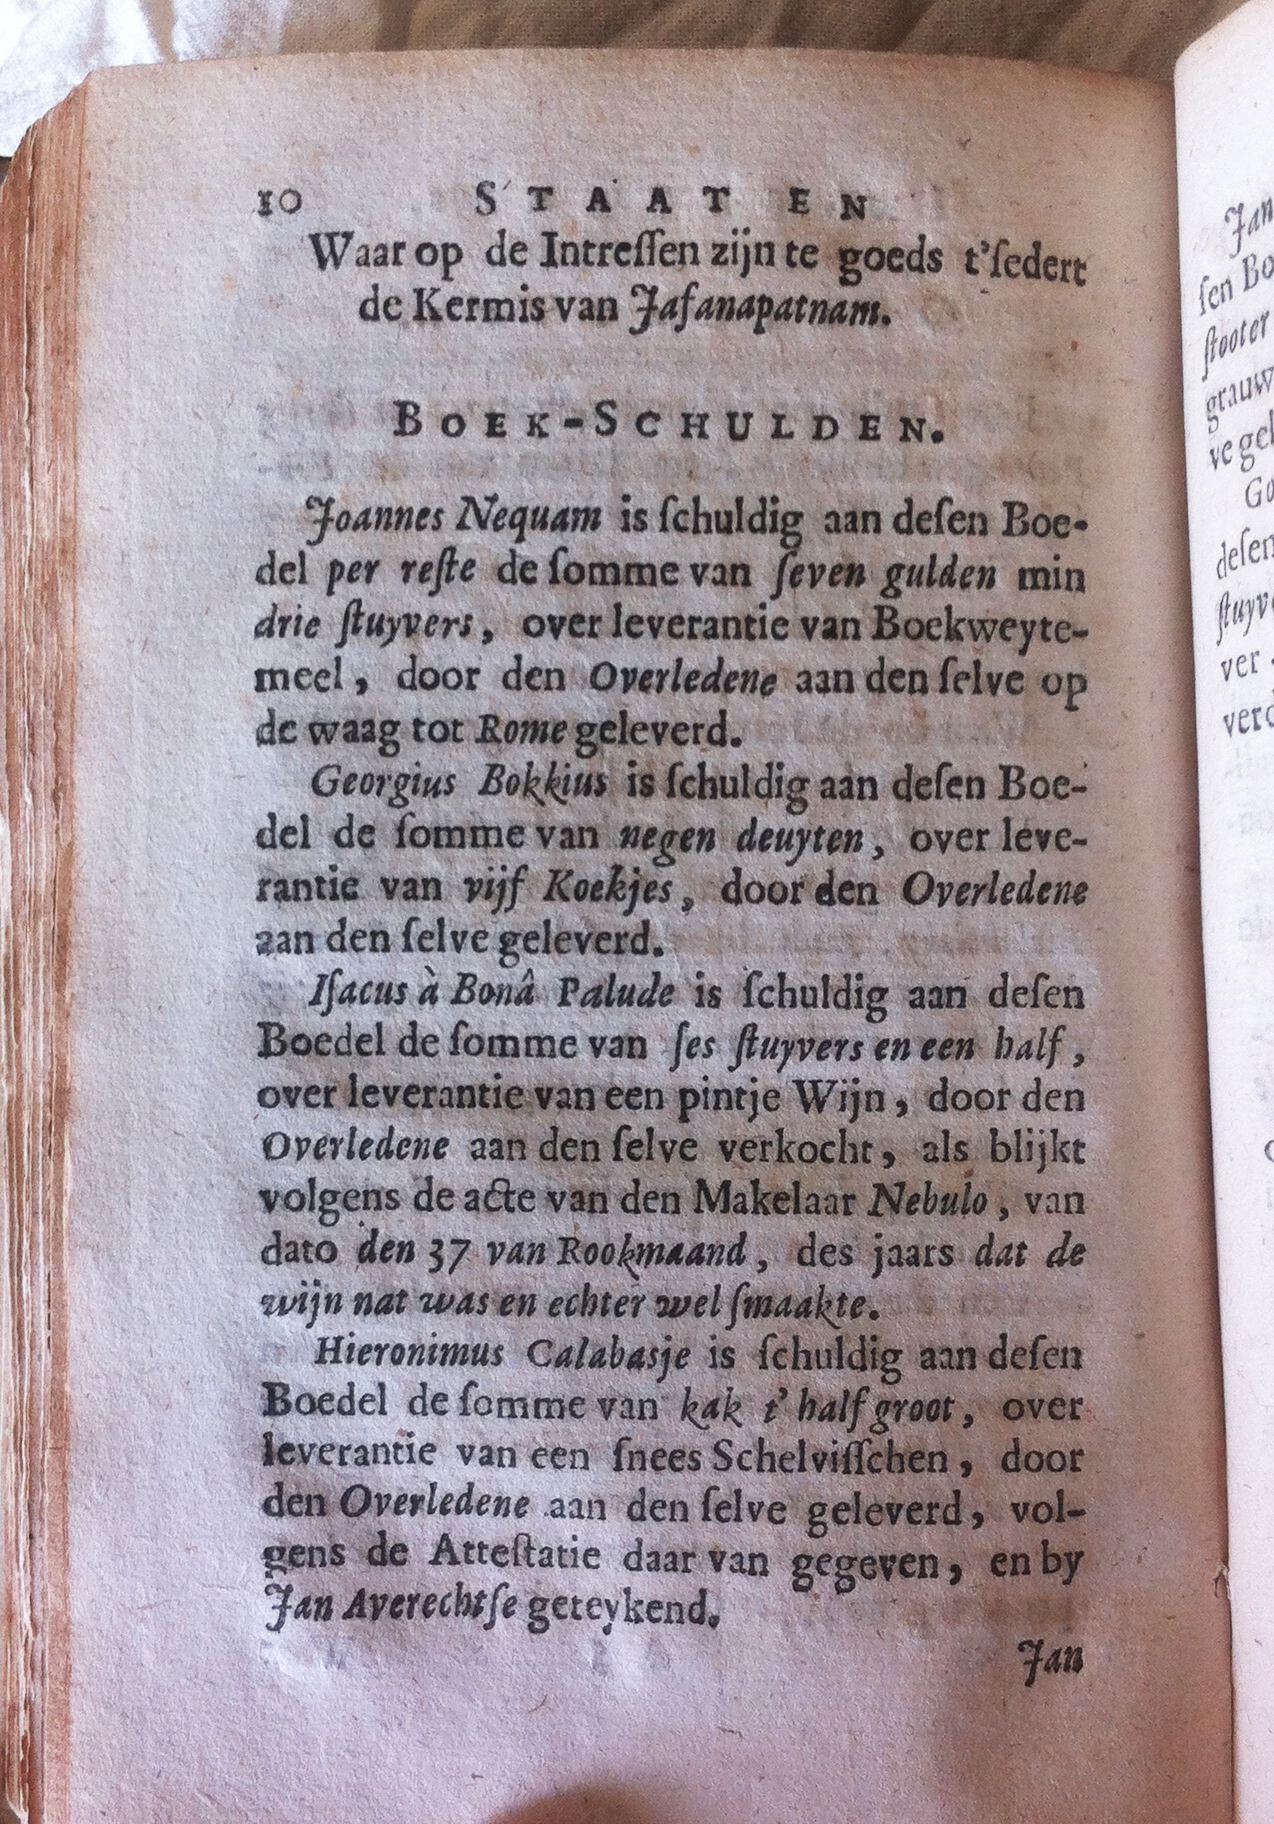 10 STAAT EN
Waar op de Intreſſen zijn te goeds t'ſedert
de Kermis van Jafanapatnam.
BOEK-SCHULDEN.
Joannes Nequam is ſchuldig aan deſen Boe-
del per reſte de ſomme van ſeven gulden min
drie ſtuyvers, over leverantie van Boekweyte-
meel, door den Overledene aan den ſelve op
de waag tot Rome geleverd.
Georgius Bokkius is ſchuldig aan deſen Boe-
del de ſomme van negen deuyten, over leve-
rantie van vijf Koekjes, door den Overledene
aan den ſelve geleverd.
Iſacus à Bonâ Palude is ſchuldig aan deſen
Boedel de ſomme van ſes ſtuyvers en een half,
over leverantie van een pintje Wijn, door den
Overledene aan den ſelve verkocht, als blijkt
volgens de acte van den Makelaar Nebulo, van
dato den 37 van Rookmaand, des jaars dat de
wijn nat was en echter wel ſmaakte.
Hieronimus Calabasje is ſchuldig aan deſen
Boedel de ſomme van kak t' half groot, over
leverantie van een ſnees Schelviſſchen, door
den Overledene aan den ſelve geleverd, vol-
gens de Atteſtatie daar van gegeven, en by
Jan Averechtſe geteykend.
Jan
Jan
ſen Bo
ſtooter
grauw
ve gel
Go
deſen
ſtuyve
ver
verd